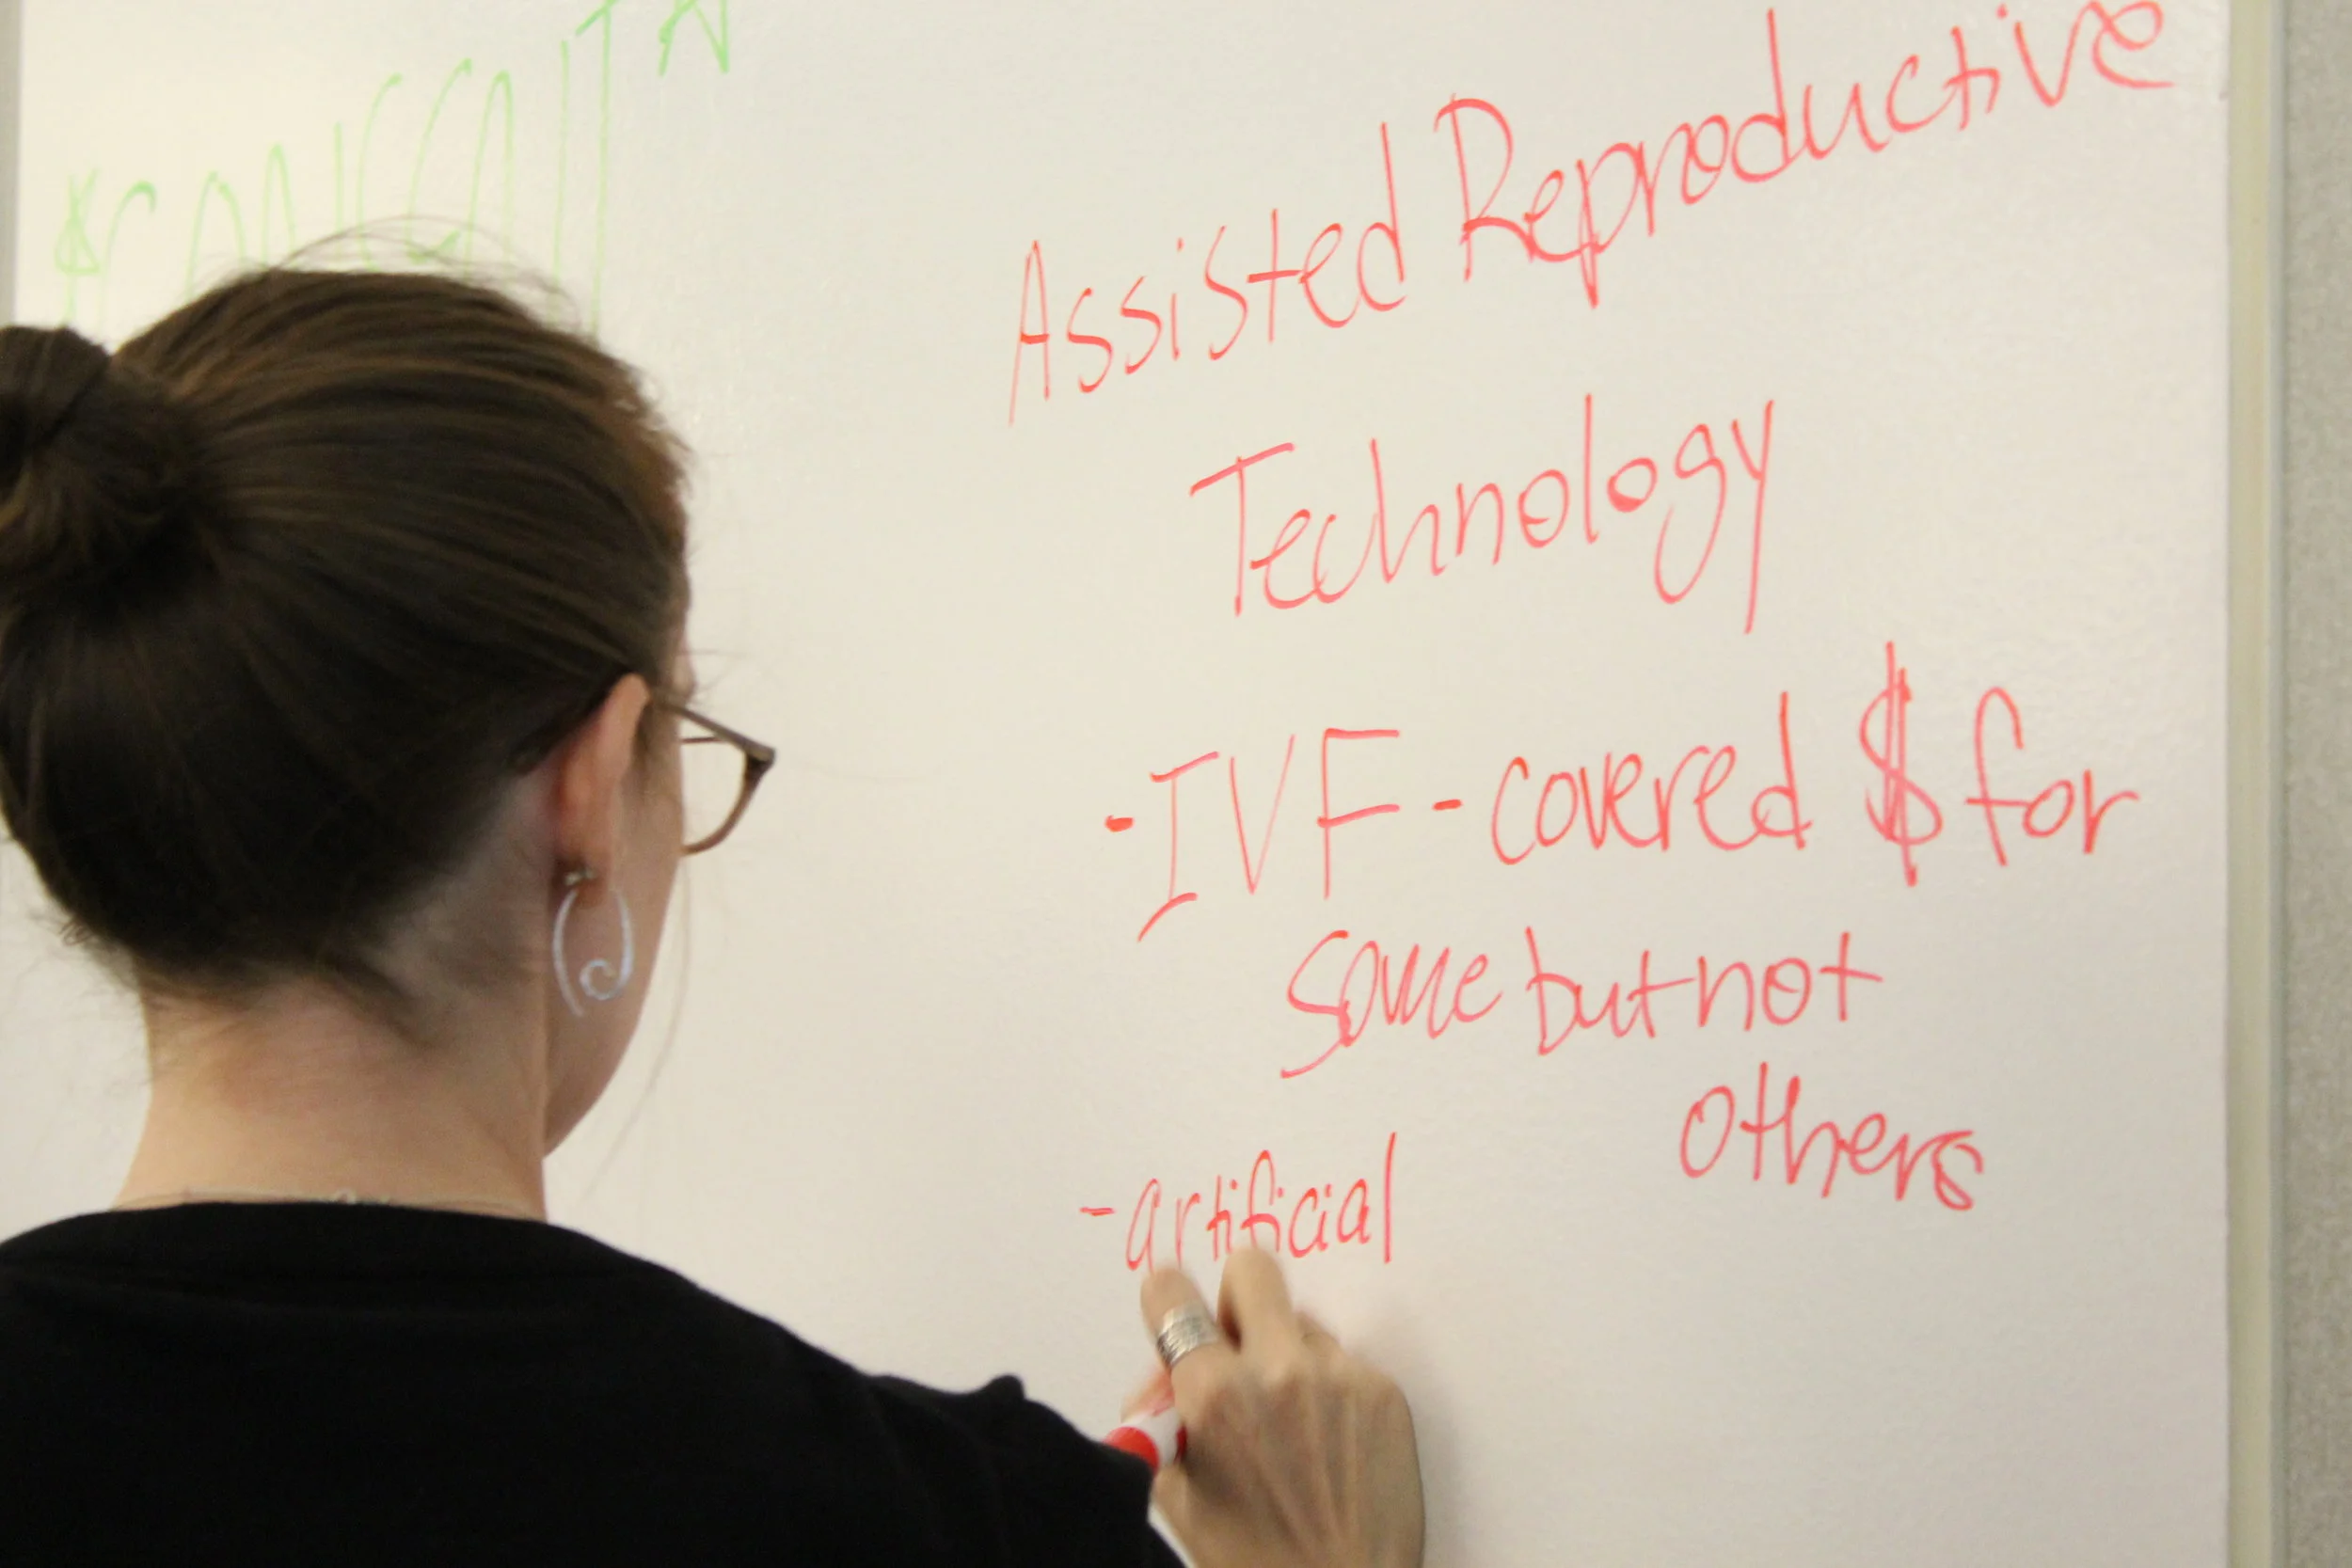 Assisted Reproductive
Technology
-IVF-covered $ for
some but not
others
-artificial